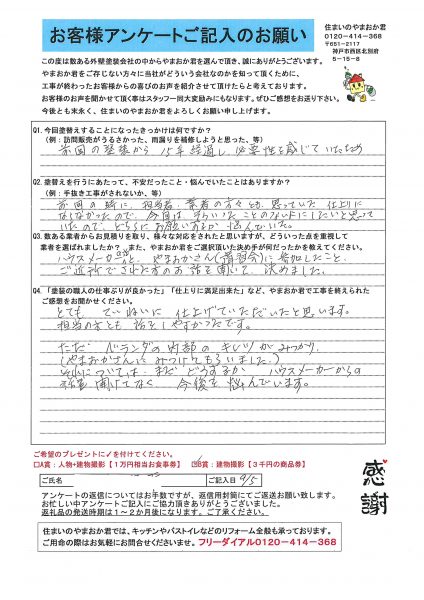 お客様アンケートご記入のお願い
住まいのやまおか君
0120-414-368
〒651-2117
神戸市西区北別府
5-15-8
この度は数ある外壁塗装会社の中からやまおか君を選んで頂き、誠にありがとうございます。
やまおか君をご存じない方々に当社がどういう会社なのかを知って頂くために、
工事が終わったお客様からの喜びのお声を紹介させて頂けたらと考えております。
お客様のお声を聞かせて頂く事はスタッフ一同大変励みにもなります。ぜひご感想をお送り下さい。
今後とも末永く、住まいのやまおか君をよろしくお願い申し上げます。
Q1. 今回塗替えすることになったきっかけは何ですか?
(例:訪問販売がうるさかった、雨漏りを補修しようと思った、等)
前回の塗装から 15年経過し、必要性を感じていたため
Q2. 塗替えを行うにあたって、不安だったこと・悩んでいたことはありますか?
(例:手抜き工事がされないか、等)
前回の時に、担当者、業者の方々とも、思っていた仕上りに
ならなかったので、今回はそういったことのない様にしたいと思って
いたので、どちらにお願いするか悩んでいた。
Q3. 数ある業者からお見積りを取り、様々な対応をされたと思いますが、どういった点を重視して
業者を選ばれましたか?また、やまおか君をご選択頂いた決め手が何だったかを教えてください。
ハウスメーカーさんと、やまおかさん(講習会)に参加したこと、
ご近所でされた方のお話を聞いて、決めました。
Q4.「塗装の職人の仕事ぶりが良かった」「仕上りに満足出来た」など、やまおか君で工事を終えられた
ご感想をお聞かせください。
とても ていねいに 仕上げていただいたと思います。
担当の方とも 話をしやすかったです。
ただ ベランダの内部の キレツが みつかり、
(やまおかさんに みつけてもらいました。)
については、まだ どうするか ハウスメーカーからの
聞けてなく 今後を 悩んでいます。
ご希望のプレゼントに✓を付けてください。
□A賞:人物+建物撮影【1万円相当お食事券】 ☑B賞:建物撮影【3千円の商品券】
ご氏名 ご記入日 9/5
アンケートの返信についてはお手数ですが、返信用封筒にてご返送お願い致します。
お忙しい中アンケートご記入にご協力頂きありがとうございました。
返礼品の発送時期は1~2か月後になります。ご了承ください。
感謝
住まいのやまおか君では、キッチンやバストイレなどのリフォーム全般も承っております。
ご用命の際はお気軽にお問合せくださいませ。フリーダイアル0120-414-368